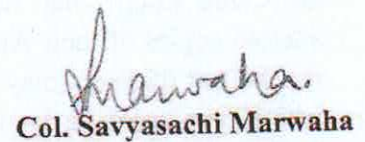 Marwaha.
Col. Savyasachi Marwaha